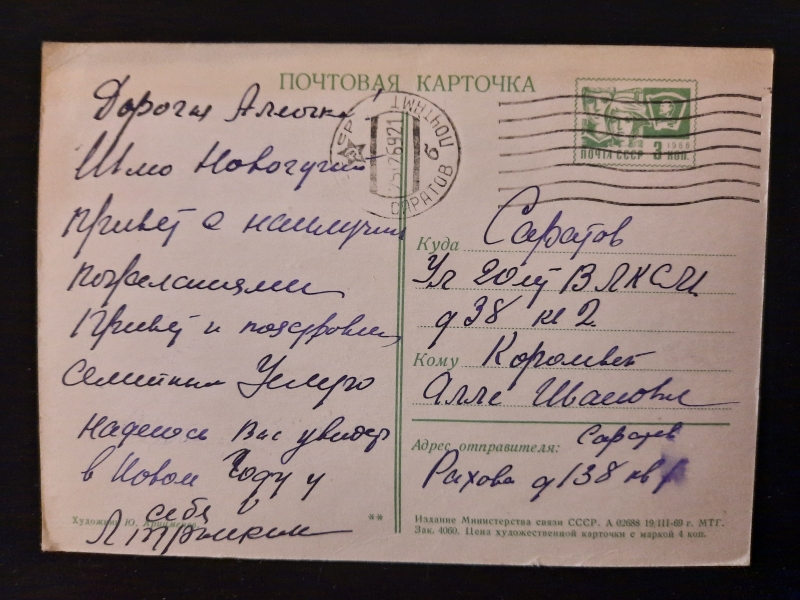 ПОЧТОВАЯ КАРТОЧКА
Дорогая Аллочка
Шлю Новогодний
привет с наилучшими
пожеланиями
Привет и поздравления
семейным
Надеюсь Вас увидеть
в Новом году у
себя
ПОЧТАМТ
САРАТОВ
6
ПОЧТА СССР 3 КОП.
1966
Куда Саратов
Ул 20 лет ВЛКСМ
д 38 кв 2
Кому
Алле Ивановне
Адрес отправителя: Саратов
Рахова д 138 кв
Художник Ю.
**
Издание Министерства связи СССР. А 02688 19/III-69 г. МТГ.
Зак. 4060. Цена художественной карточки с маркой 4 коп.